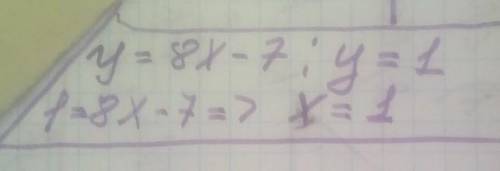 y = 8x - 7 ; y = 1
1 = 8x - 7 => x = 1